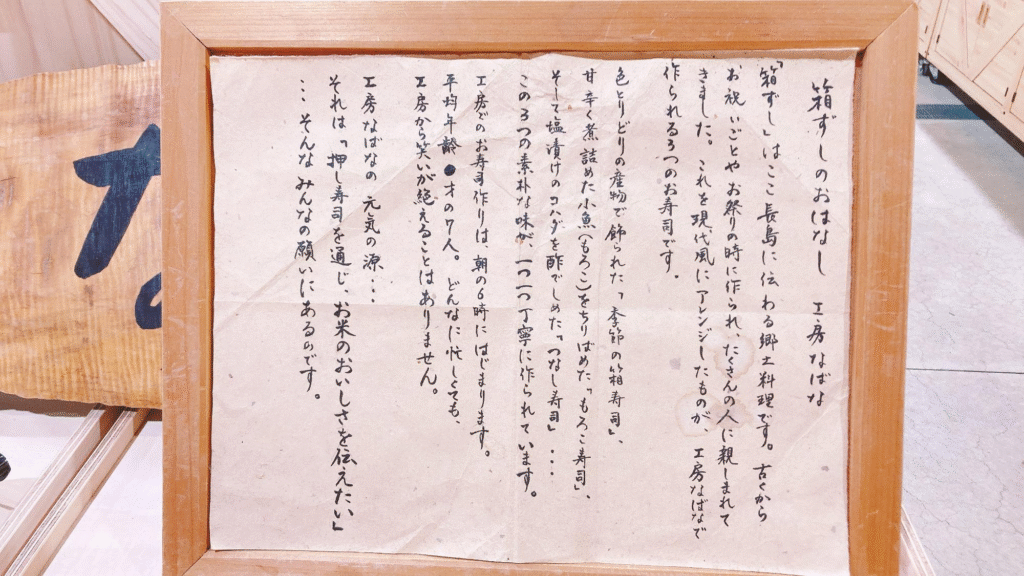 箱ずしのおはなし 工房なばな
「箱ずし」は ここ 長島に伝わる郷土料理です。古くから
お祝いごとや お祭りの時に作られ、たくさんの人に親しまれて
きました。これを現代風にアレンジしたものが 工房なばなで
作られる3つのお寿司です。
色とりどりの産物で飾られた「季節の箱寿司」、
甘辛く煮詰めた小魚(もろこ)をちりばめた「もろこ寿司」、
そして塩漬けのコハダを酢でしめた「つなし寿司」・・・
この3つの素朴な味が 一つ一つ丁寧に作られています。
工房でのお寿司作りは、朝の6時にはじまります。
平均年齢●才の7人。どんなに忙しくても、
工房から笑いが絶えることはありません。
工房なばなの 元気の源・・・
それは「押し寿司を通じ、お米のおいしさを伝えたい」
・・・そんな みんなの願いにあるのです。
な